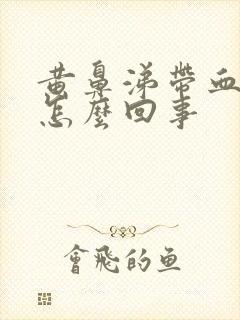 黄鼻涕帶血
怎麼回事
會飛的鱼